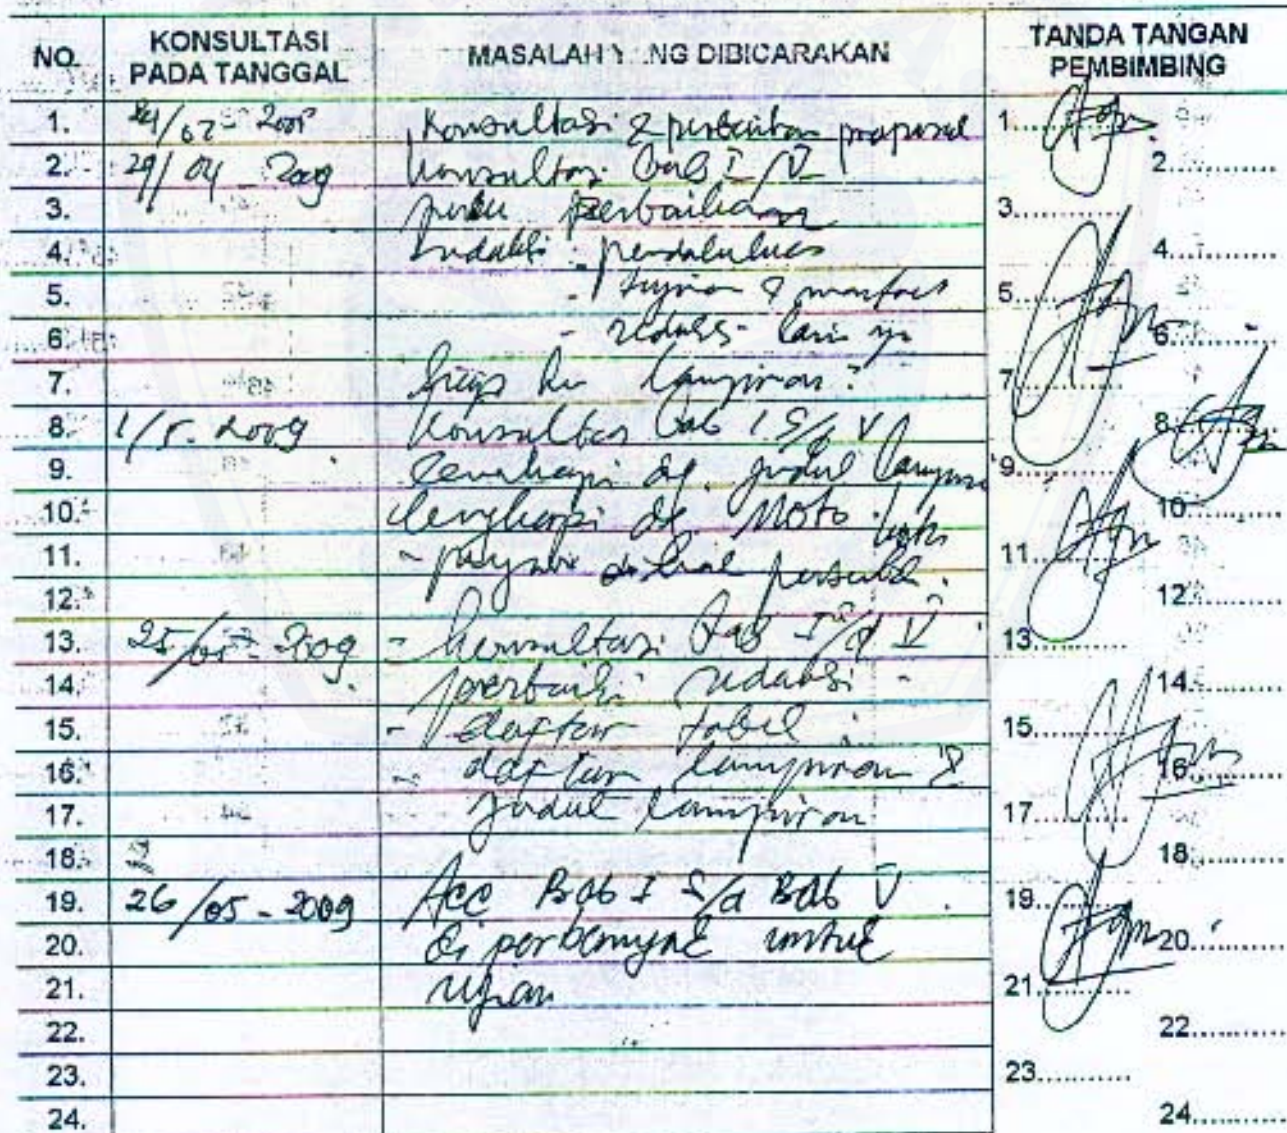 NO. KONSULTASI PADA TANGGAL MASALAH Y NG DIBICARAKAN TANDA TANGAN PEMBIMBING
1. Konsultasi & proposal 1............
2. 29/04 - 2009 konsultasi bab I/V 2............
3. perlu perbaikan 3............
4. Redaksi - pendahuluan 4............
5. - tujuan & manfaat 5............
6. - redaksi lain nya 6............
7. lampiran 7............
8. 1/5. 2009 Konsultasi bab I S/d V 8............
9. lengkapi dg. judul lampiran 9............
10. lengkapi dg Moto 10............
11. - 11............
12. 12............
13. 25/05 - 2009 - konsultasi Bab I s/d V 13............
14. perbaiki redaksi - 14............
15. - daftar tabel 15............
16. - daftar lampiran & 16............
17. judul lampiran 17............
18. 18............
19. 26/05 - 2009 Acc Bab I S/d Bab V 19............
20. di perbanyak untuk 20............
21. ujian 21............
22. 22............
23. 23............
24. 24............